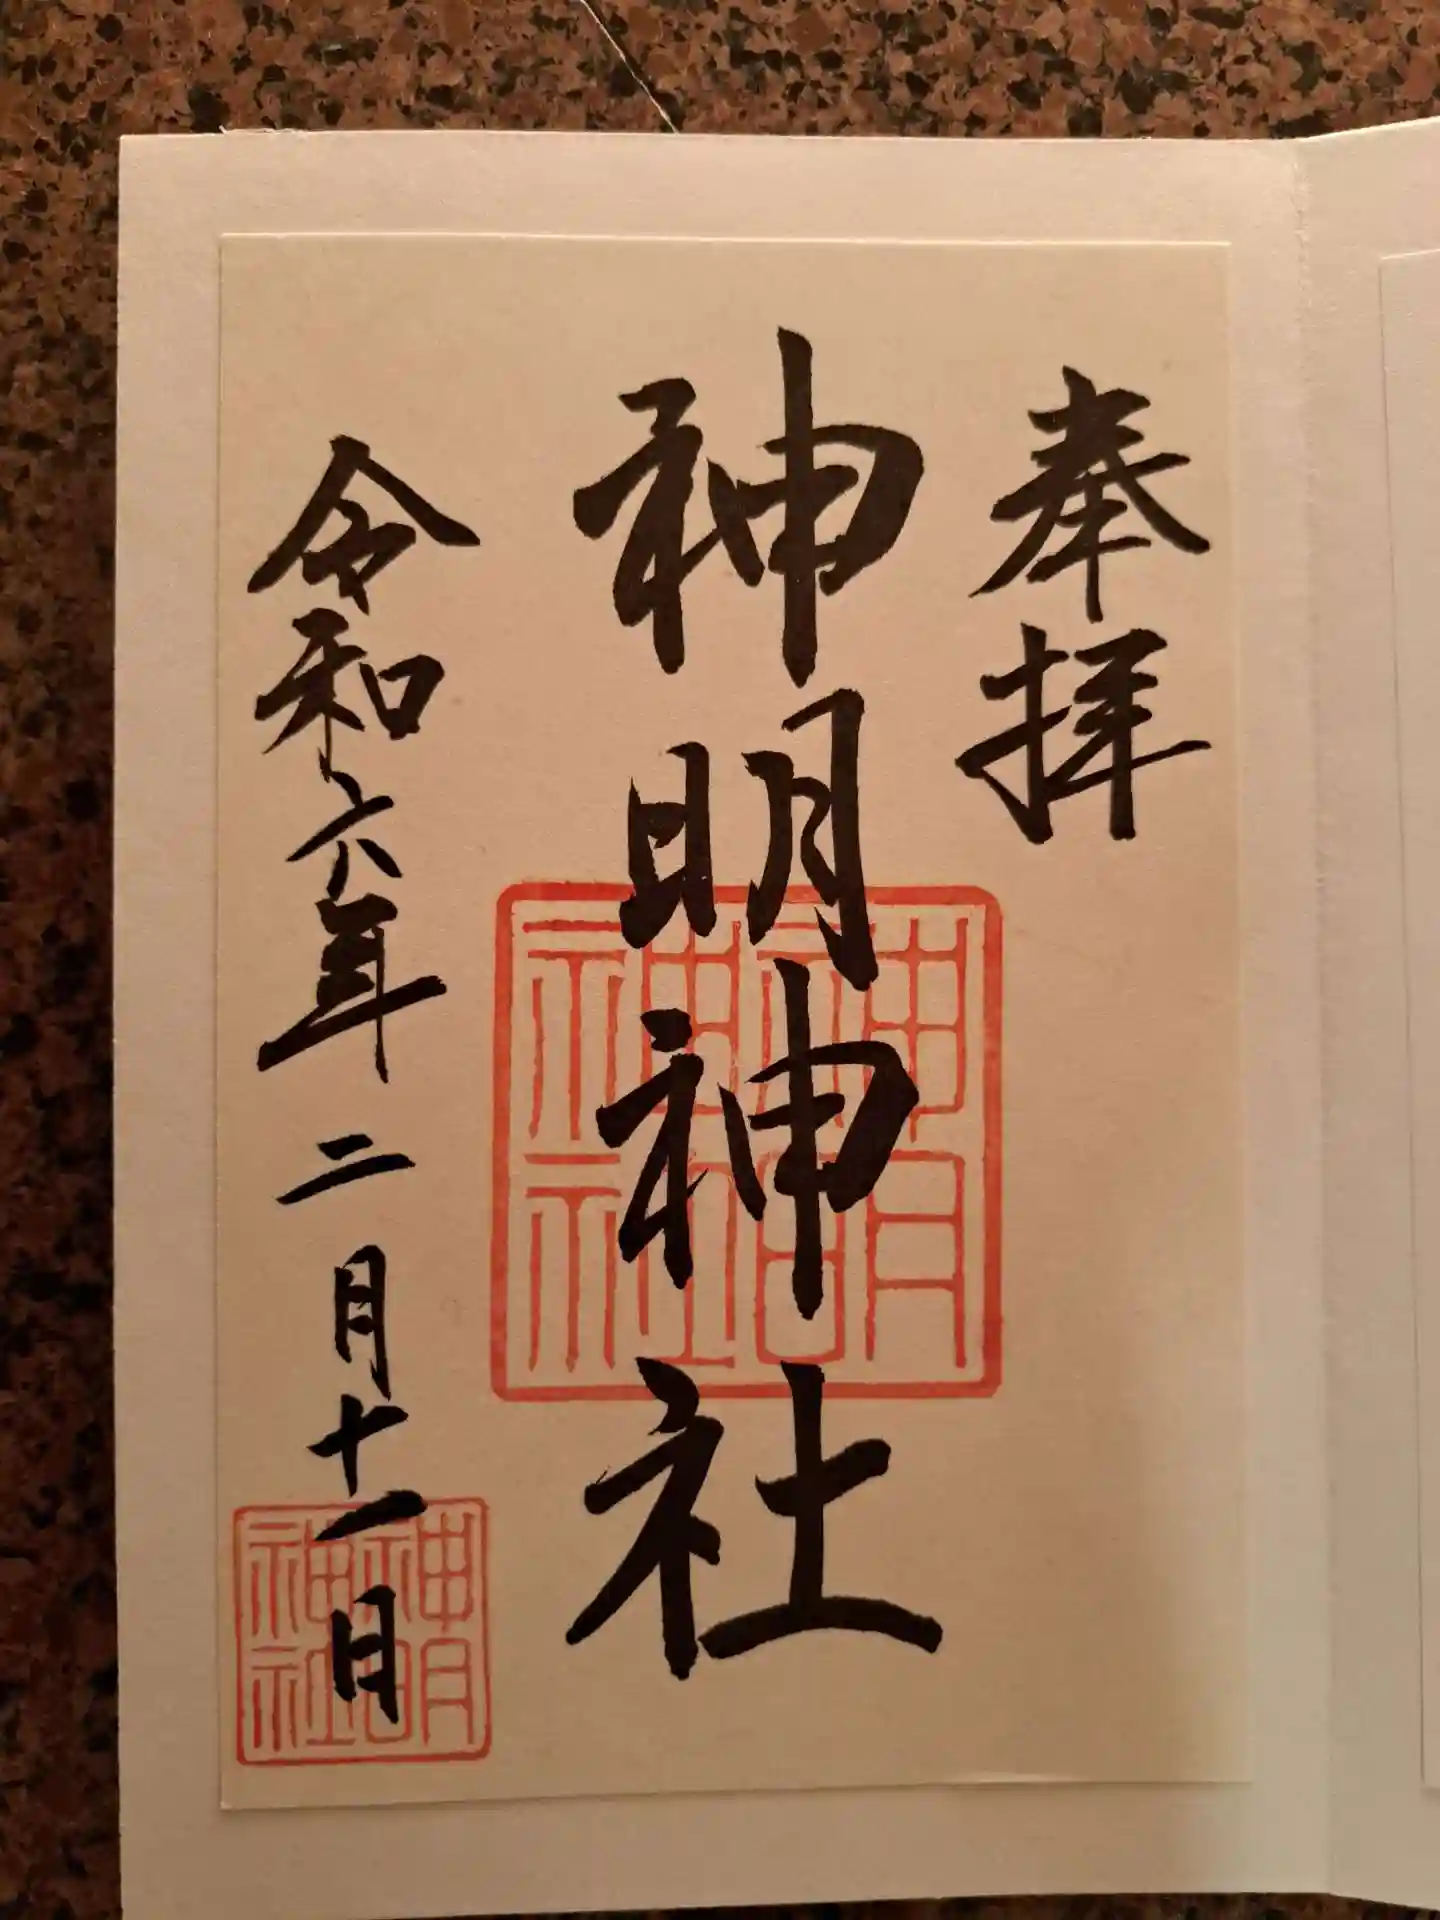 奉拝
神明神社
令和六年二月十一日
神明
神社
神明
神社